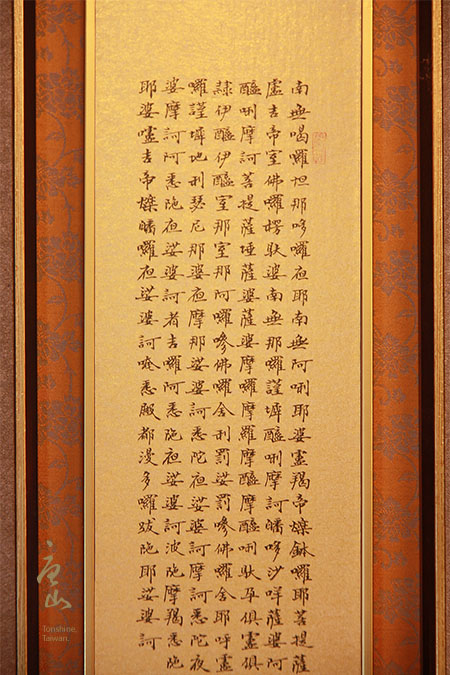 南無喝囉怛那哆囉夜耶南無阿唎耶婆盧羯帝爍鉢囉耶菩提薩
盧吉帝室佛囉楞馱婆南無那囉謹墀醯唎摩訶皤哆沙咩薩婆阿
醯唎摩訶菩提薩埵薩婆薩婆摩囉摩羅摩醯摩醯唎馱孕俱盧俱
隸伊醯伊醯室那室那阿囉嘇佛囉舍利罰娑罰嘇佛囉舍耶呼盧
囉謹墀地利瑟尼那婆夜摩那娑婆訶悉陀夜娑婆訶摩訶悉陀夜
婆摩訶阿悉陁夜娑婆訶者吉囉阿悉陁夜娑婆訶波陁摩羯悉陁
耶婆嚧吉帝爍皤囉夜娑婆訶唵悉殿都漫多囉跋陁耶娑婆訶
唐山
Tonshine,
Taiwan.